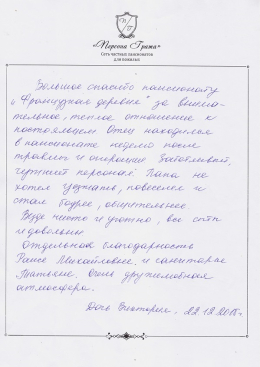 «Персона Гранж»
Сеть частных пансионатов
для пожилых
Большое спасибо пансионату
"Французская деревня" за внима-
тельное, теплое отношение к
постояльцам Отец находился
в пансионате неделю после
травмы и операции Заботливый,
чуткий персонал Папа не
хотел уезжать, повеселел и
стал бодрее, общительнее.
Везде чисто и уютно, все сыты
и довольны
Отдельная благодарность
Раисе Михайловне и санитарке
Татьяне. Очень дружелюбная
атмосфера.
Дочь Виктория. 22.12.2015г.